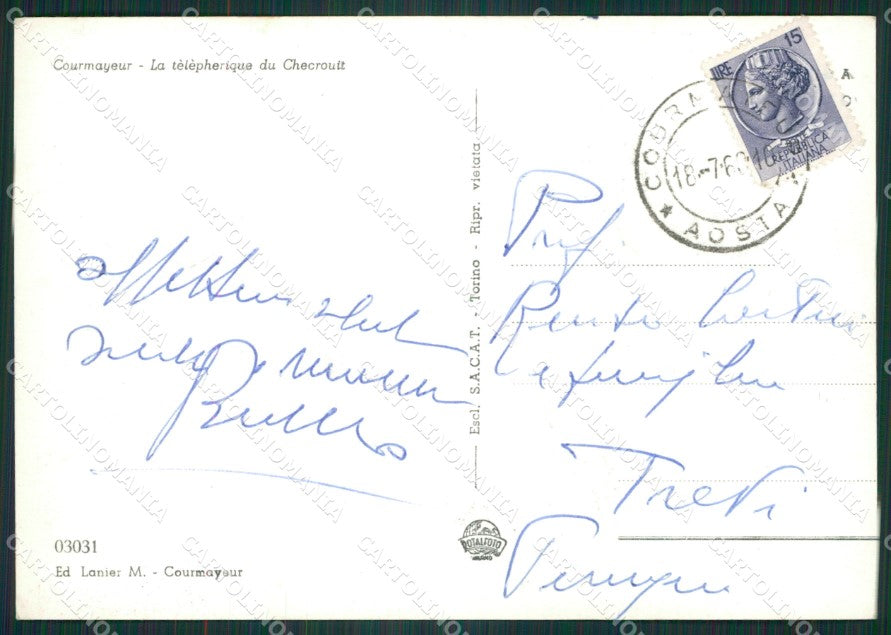 Courmayeur - La tèlèpherique du Checrouit
LIRE 15
REPUBBLICA
ITALIANA
COURM
18-7-6
AOSTA
Escl. S.A.C.A.T. - Torino - Ripr. vietata
Prof.
Renato
e famiglia
Trevi
Perugia
Affettuosi saluti
03031
Ed Lanier M. - Courmayeur
ROTALFOTO
MILANO
CARTOLINOMANIA